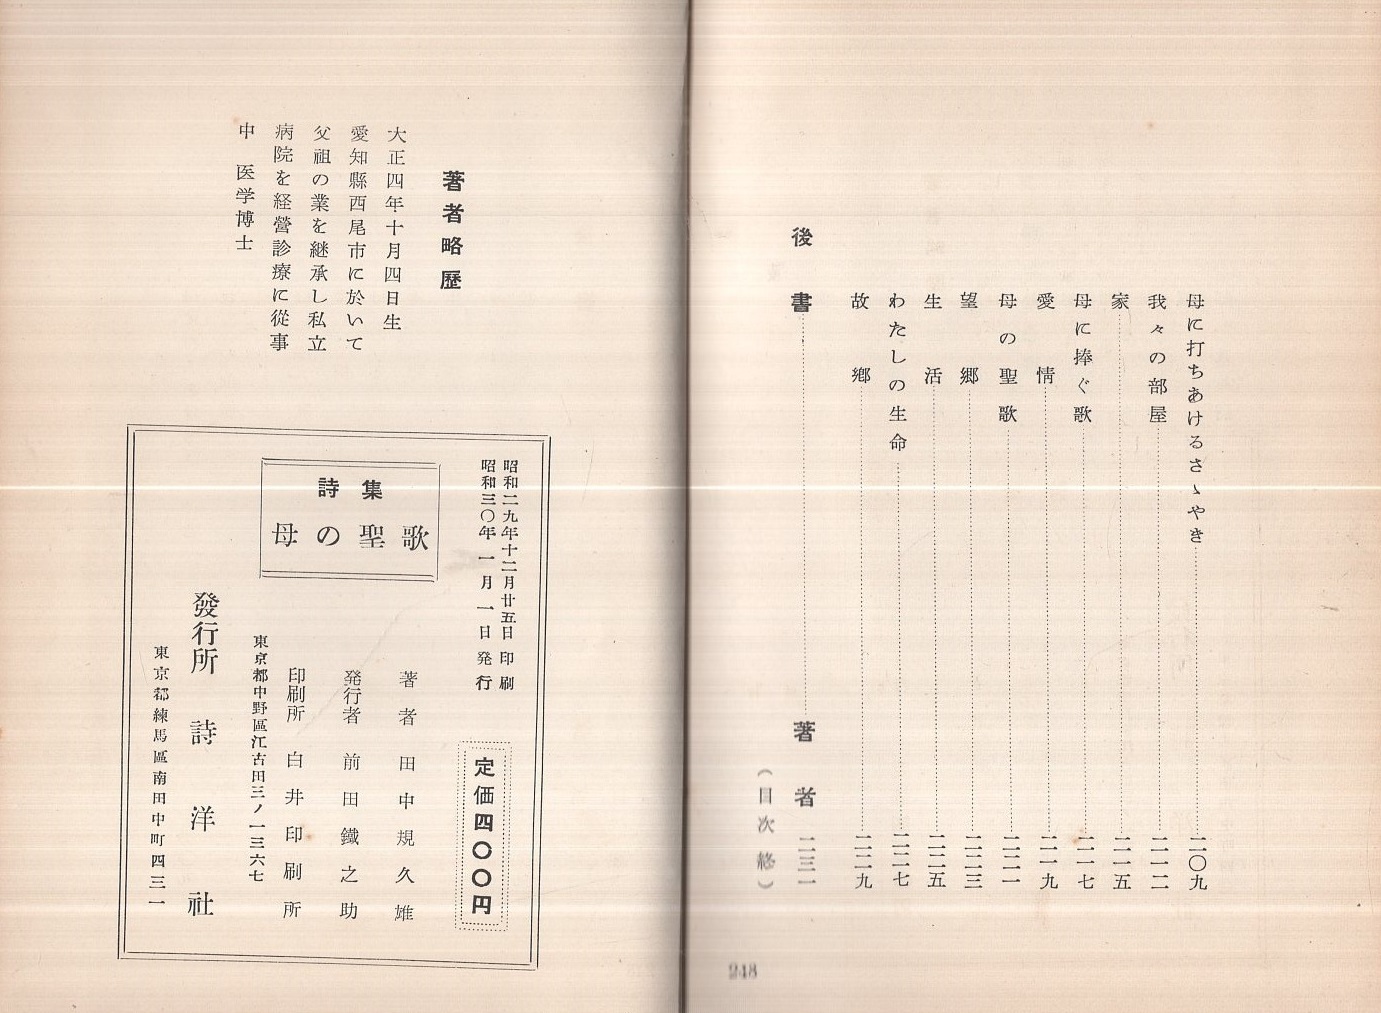 母に打ちあけるさゝやき 二〇九
我々の部屋 二一二
家 二一五
母に捧ぐ歌 二一七
愛情 二一九
母の聖歌 二二一
望郷 二二三
生活 二二五
わたしの生命 二二七
故郷 二二九
後書 著者 二三一
(目次終)
248
著者略歴
大正四年十月四日生
愛知縣西尾市に於いて
父祖の業を継承し私立
病院を経營診療に從事
中 医学博士
昭和二九年十二月廿五日 印刷
昭和三〇年一月一日 発行
定価四〇〇円
詩集
母の聖歌
著者 田中規久雄
発行者 前田鐵之助
印刷所 白井印刷所
東京都中野區江古田三ノ一三六七
發行所 詩洋社
東京都練馬區南田中町四三一